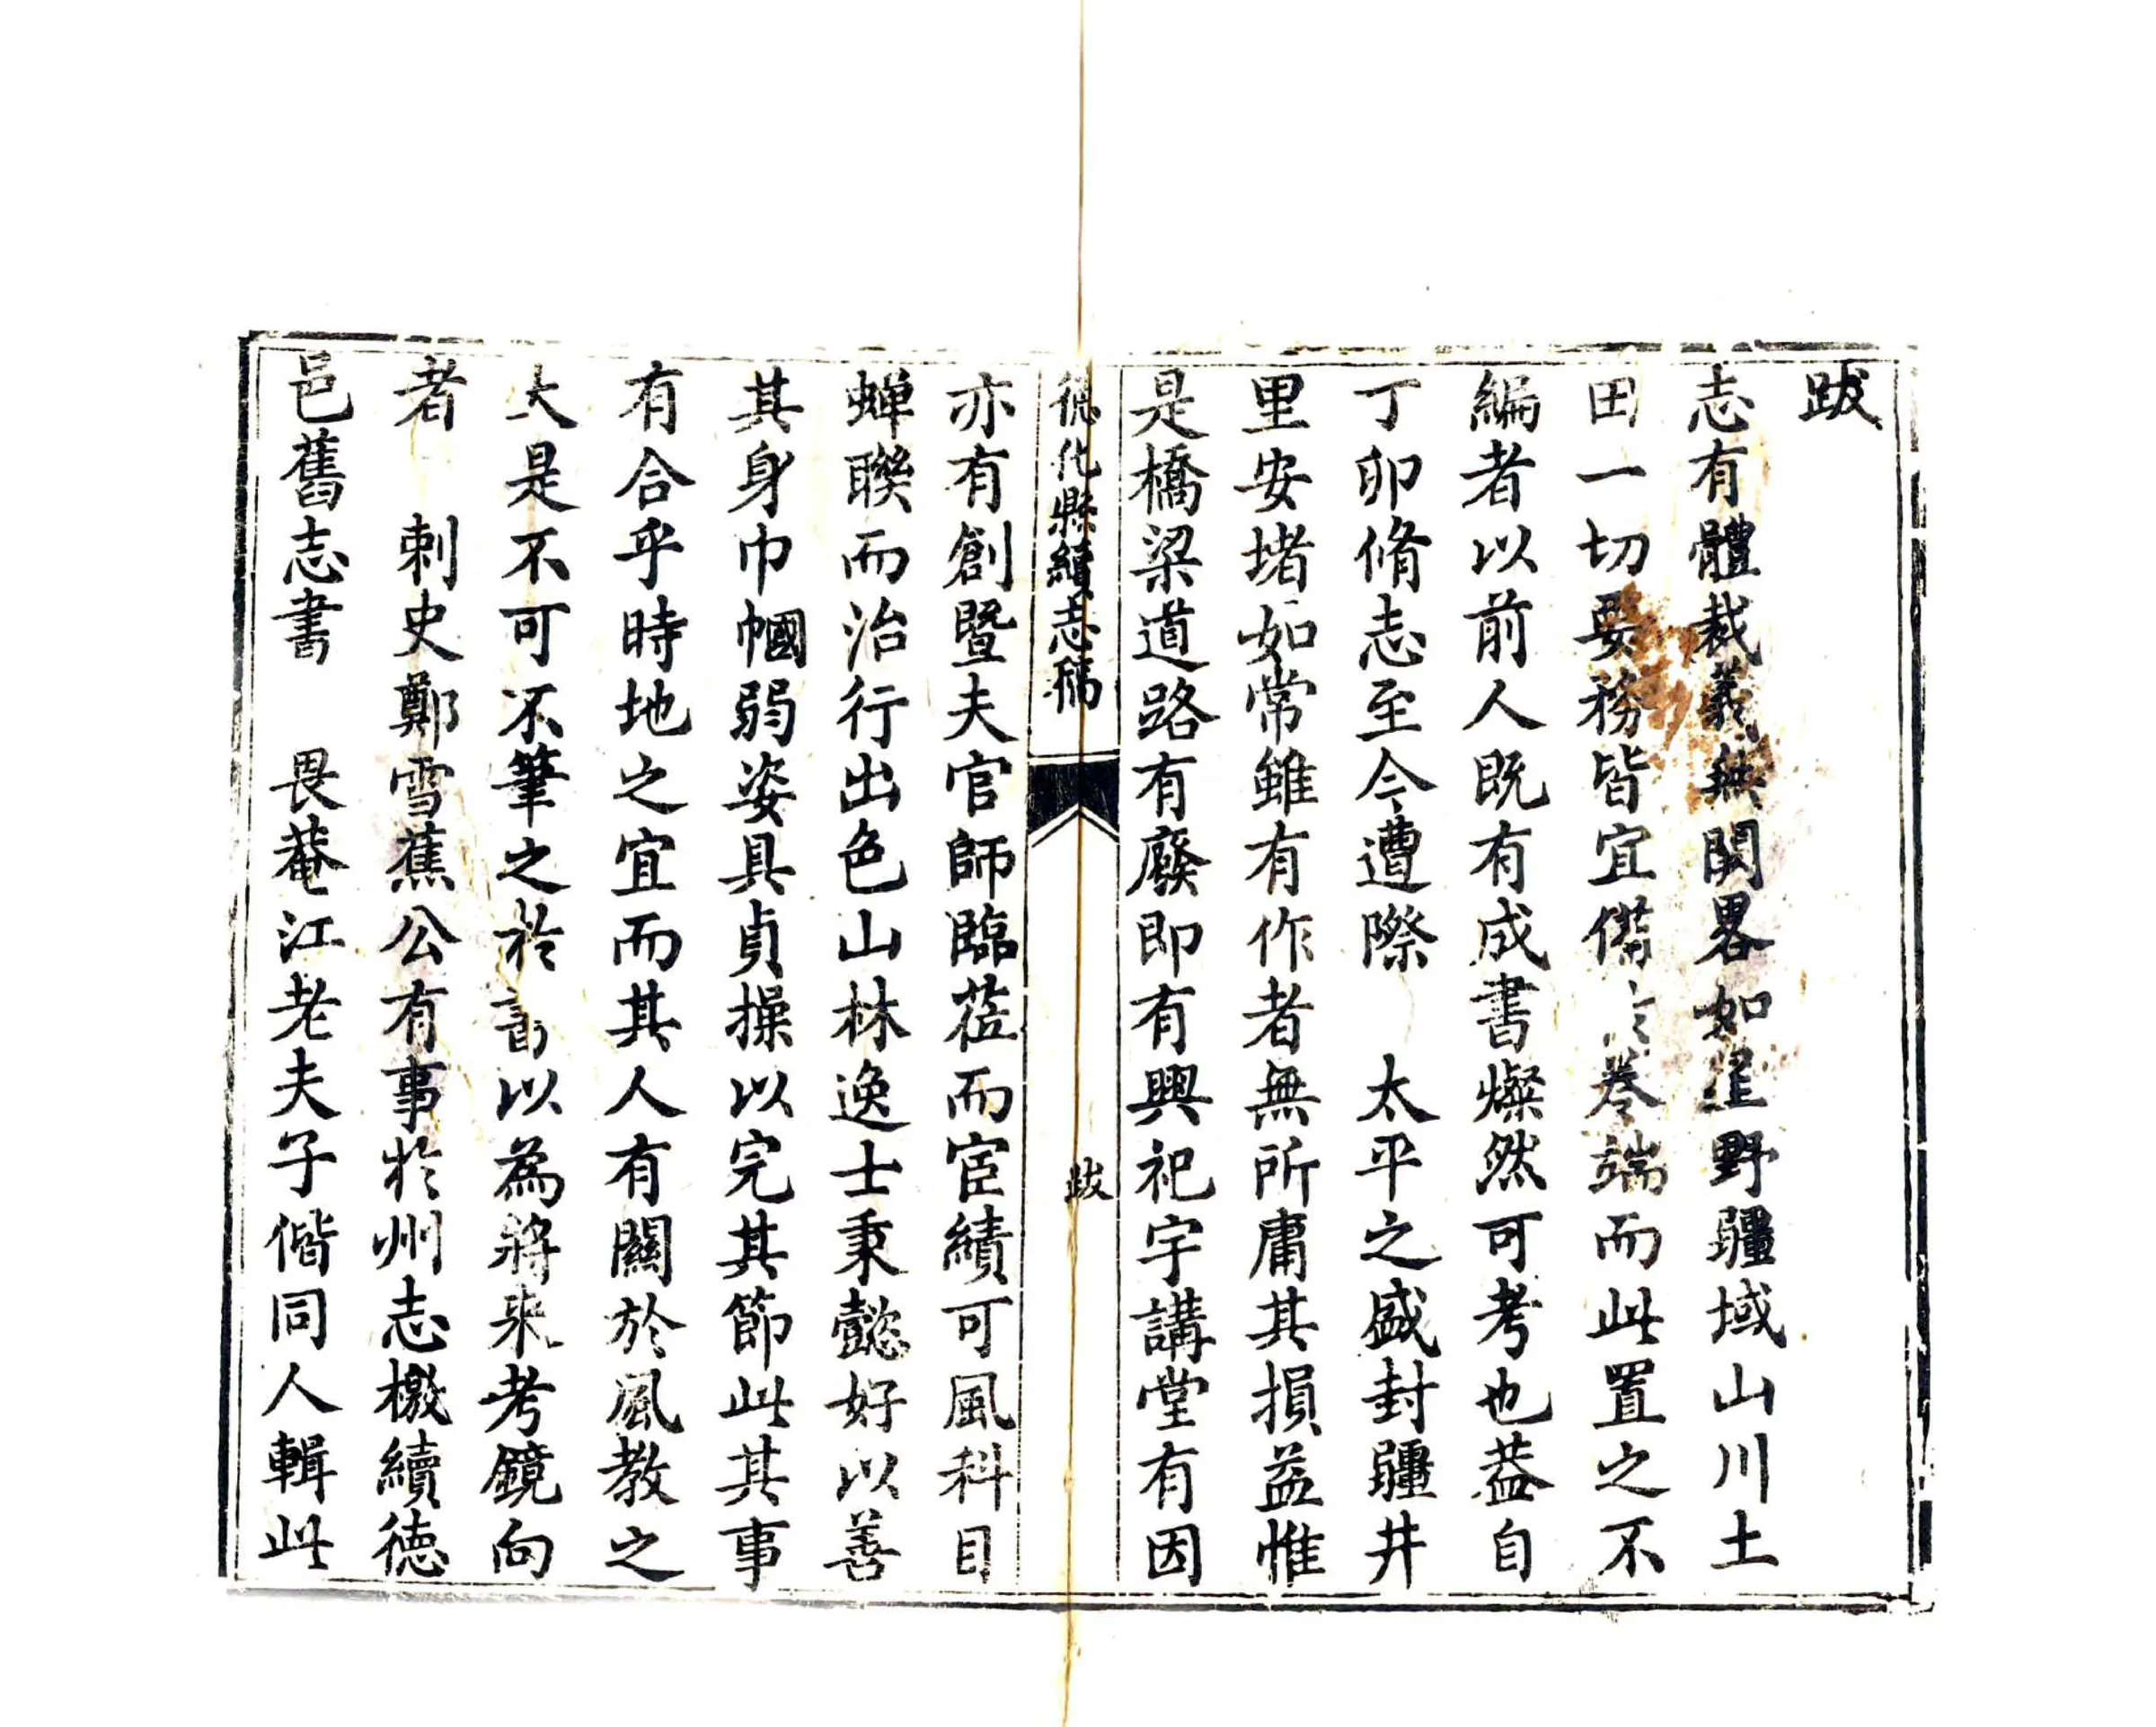 跋
志有體裁義無闕畧如星野疆域山川土
田一切要務皆宜備卷端而此置之不
編者以前人既有成書燦然可考也葢自
丁卯脩志至今遭際 太平之盛封疆井
里安堵如常雖有作者無所庸其損益惟
是橋梁道路有廢即有興祀宇講堂有因
德化縣續志稿
跋
亦有創暨夫官師臨蒞而宦績可風科目
蟬聯而治行出色山林逸士秉懿好以善
其身巾幗弱姿具貞操以完其節此其事
有合乎時地之宜而其人有關於風教之
大是不可不筆之於書以為將來考鏡向
者 刺史鄭雪蕉公有事於州志檄續德
邑舊志書 畏菴江老夫子偕同人輯此